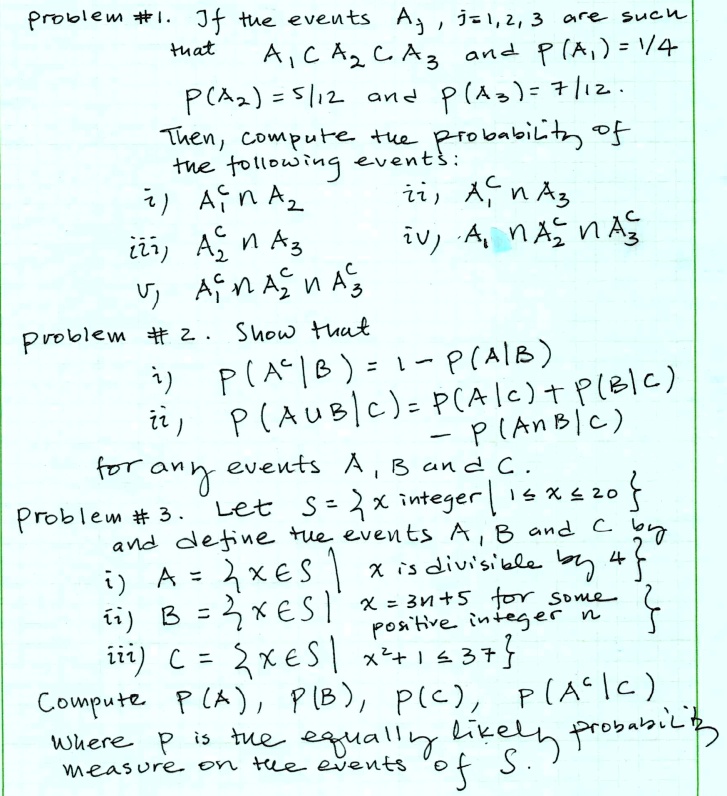 Problem #1. If the events Aj, j=1,2,3 are such
that A₁ ⊂ A₂ ⊂ A₃ and P(A₁) = 1/4
P(A₂) = 5/12 and P(A₃) = 7/12.
Then, compute the probability of
the following events:
i) A₁ᶜ ∩ A₂ ii) A₁ᶜ ∩ A₃
iii) A₂ᶜ ∩ A₃ iv) A₁ ∩ A₂ᶜ ∩ A₃ᶜ
v) A₁ᶜ ∩ A₂ᶜ ∩ A₃ᶜ
Problem #2. Show that
i) P(Aᶜ|B) = 1 - P(A|B)
ii) P(A∪B|C) = P(A|C) + P(B|C)
- P(A∩B|C)
for any events A, B and C.
Problem #3. Let S = {x integer | 1 ≤ x ≤ 20}
and define the events A, B and C by
i) A = {x ∈ S | x is divisible by 4}
ii) B = {x ∈ S | x = 3n+5 for some
positive integer n}
iii) C = {x ∈ S | x² + 1 ≤ 37}
Compute P(A), P(B), P(C), P(Aᶜ|C)
where P is the equally likely probability
measure on the events of S.